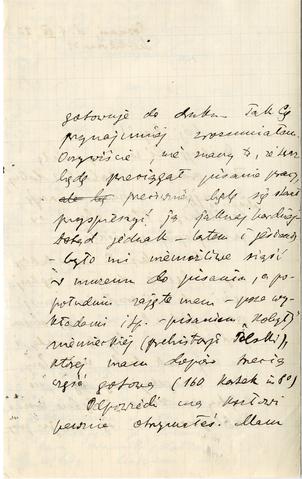 gotowuje do druku. Tak Cię
przynajmniej zrozumiałem.
Oczywiście, nie znaczy to, że
będę przeciągał pisanie pracy,
ale bę przeciwnie, będę się starał
przyspieszyć ją jaknajbardziej
dotąd jednak – latem i jesienią
– było mi niemożliwe siąść
w muzeum do pisania, a po-
południu zajęte mam – poza wy-
kładami itp. – pisaniem
niemieckiej (prehistorji Polski),
której mam dopiero trzecią
część gotową (160 kartek in 8°)
Odpowiedź na kartkę
pewnie otrzymałeś. Mam